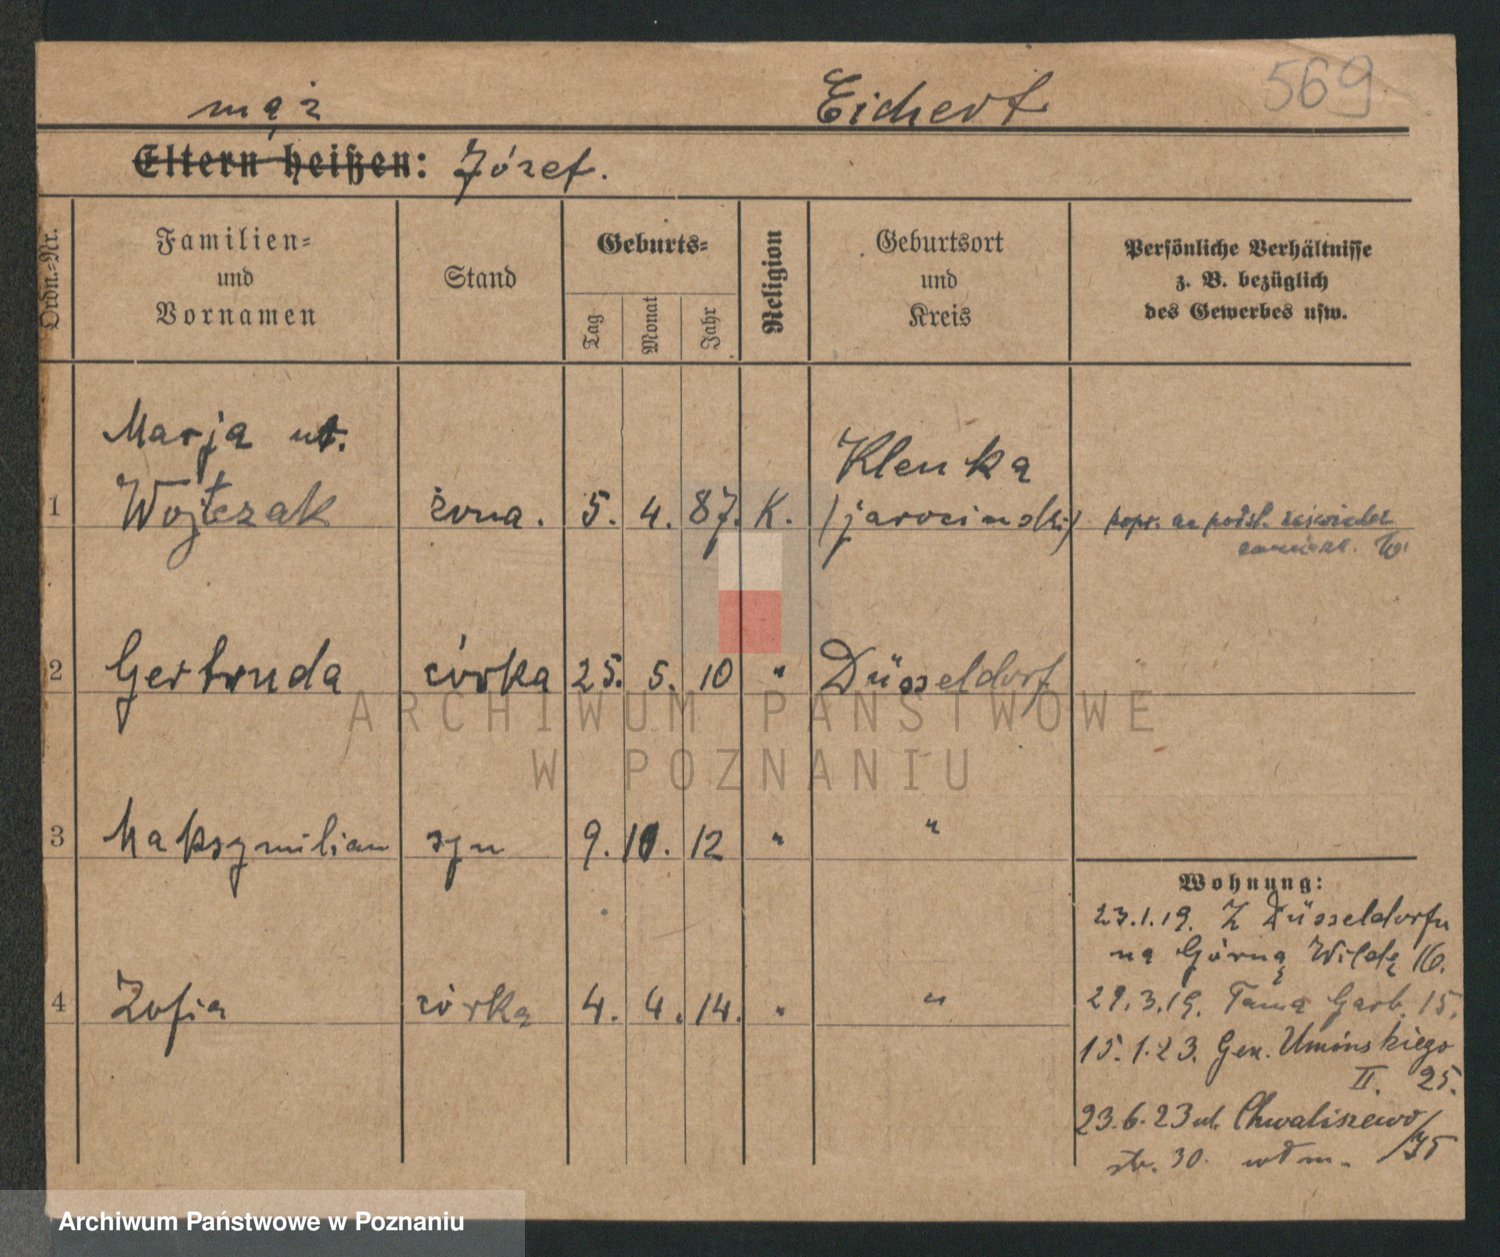 569
mąż Eichert
Eltern heißen: Józef.
Ordn.-Nr.
Familien- und Vornamen
Stand
Geburts-
Tag
Monat
Jahr
Religion
Geburtsort und Kreis
Persönliche Verhältnisse
z. B. bezüglich
des Gewerbes usw.
Marja
Klenka
1 Wojtczak żona. 5. 4. 87. K. (jarociński)
2 Gertruda córka 25. 5. 10 " Düsseldorf
3 Maksymilian syn 9. 10. 12 " "
Wohnung:
23.1.19. Z Düsseldorfu
na Górną Wildę 16.
4 Zofia córka 4. 4. 14. " "
29.3.19. Tama Garb. 15.
15.1.23. Gen. Umińskiego
II. 25.
23.6.23 ul. Chwaliszewo
str. 30.
ARCHIWUM PAŃSTWOWE
W POZNANIU
Archiwum Państwowe w Poznaniu